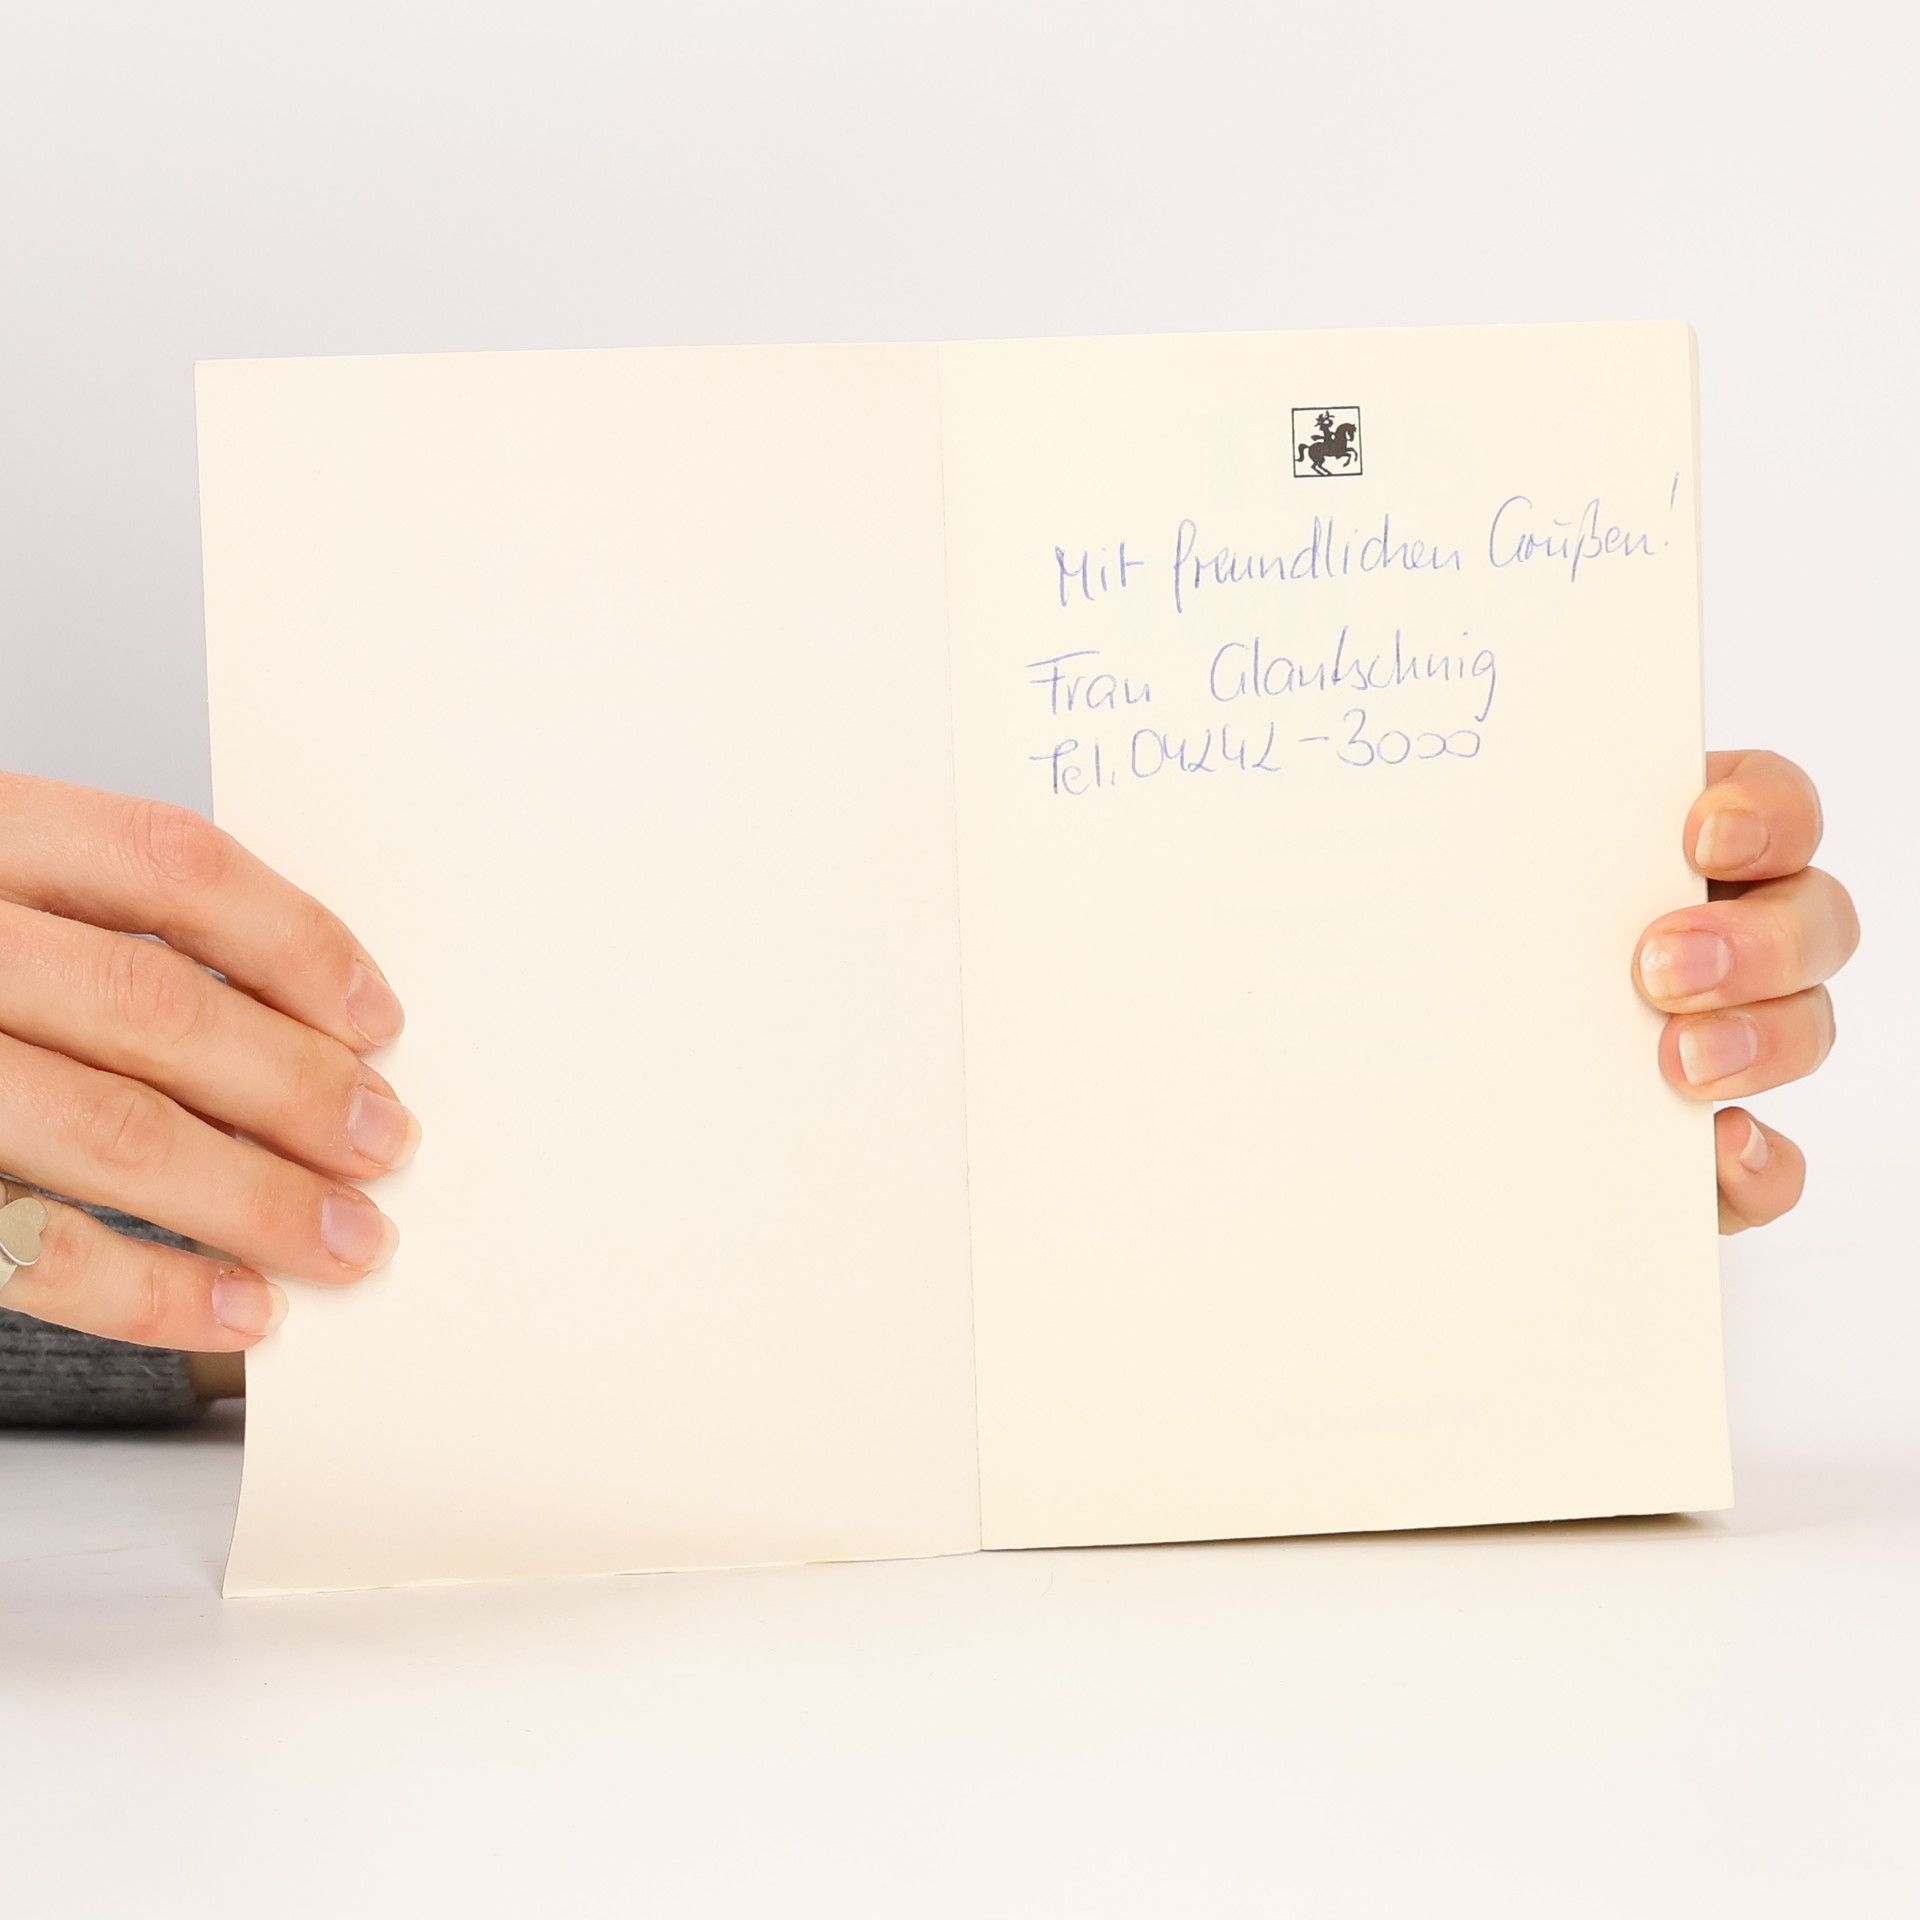 Mit freundlichen Grüßen!
Frau Glantschnig
Tel. 04242-3000